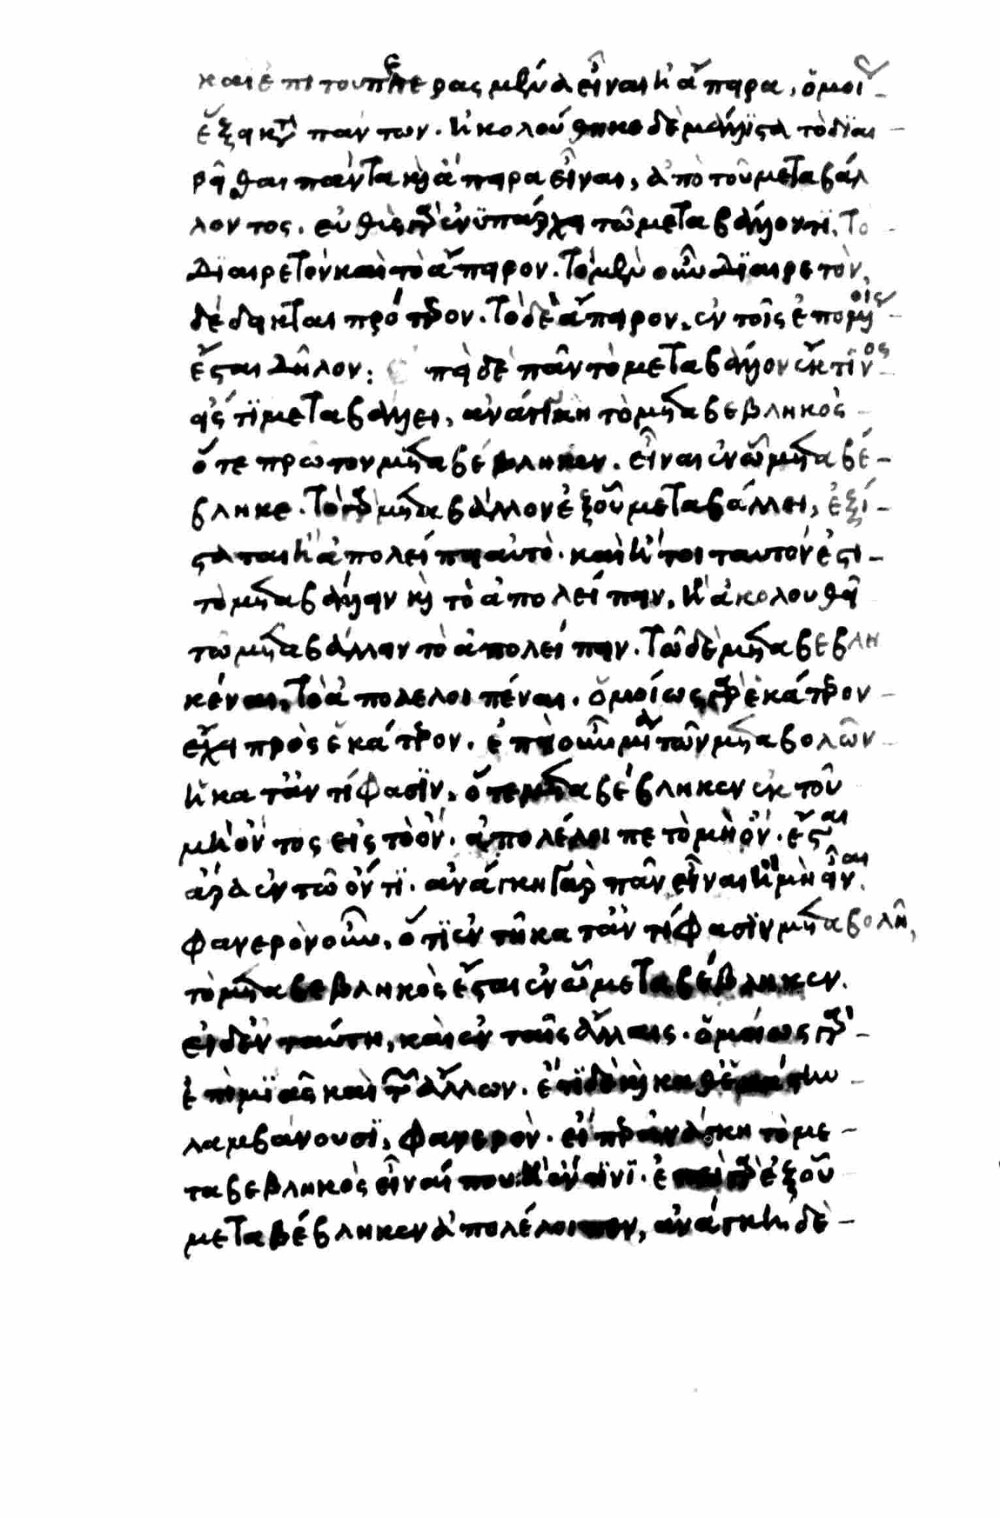 και ἐπι του πεπερασμένα εἶναι ἢ ἄπειρα, ὁμοί
ἕξει κατὰ πάντων. ἠκολούθηκε δὲ μάλιστα τὸ διαι
ρεῖσθαι πάντα καὶ ἄπειρα εἶναι, ἀπὸ τοῦ μεταβάλ
λοντος. εὐθὺς γὰρ ἐνϋπάρχει τῶ μεταβάλλοντι, το
διαιρετὸν καὶ τὸ ἄπειρον. τὸ μὲν οὖν διαιρετὸν,
δέδεικται πρότερον. τὸ δὲ ἄπειρον, ἐν τοῖς ἑπομένοις
ἔσται δῆλον: ἐπεὶ δὲ πᾶν τὸ μεταβάλλον ἔκ τινος
εἴς τι μεταβάλλει, ἀνάγκη τὸ μεταβεβληκὸς
ὅτε πρωτον μεταβέβληκεν. εἶναι ἐν ὧ μεταβέ-
βληκε. τὸ γὰρ μεταβάλλον ἐξ οὗ μεταβάλλει, ἐξί-
σταται ἢ ἀπολείπει αὐτό. καὶ ἤτοι ταυτόν ἐστι
τὸ μεταβάλλειν καὶ τὸ ἀπολείπειν, ἢ ἀκολουθεῖ
τῶ μεταβάλλειν τὸ ἀπολείπειν. τῶ δὲ μεταβεβλη
κέναι, τὸ ἀπολελοιπέναι. ὁμοίως γὰρ ἑκάτερον
ἔχει πρὸς ἑκάτερον. ἐπεὶ οὖν μία τῶν μεταβολῶν
ἡ κατ' ἀντίφασιν, ὅτε μεταβέβληκεν ἐκ τοῦ
μὴ ὄντος εἰς τὸ ὄν. ἀπολέλοιπε τὸ μὴ ὄν. ἔσται
ἄρα ἐν τῶ ὄντι. ἀνάγκη γὰρ πᾶν εἶναι ἢ μὴ εἶναι.
φανερὸν οὖν, ὅτι ἐν τῆ κατ' ἀντίφασιν μεταβολῆ,
τὸ μεταβεβληκὸς ἔσται ἐν ὧ μεταβέβληκεν.
εἰ δ' ἐν ταύτη, καὶ ἐν ταῖς ἄλλαις. ὁμοίως γὰρ
ἐπὶ μιᾶς καὶ τῶν ἄλλων. ἔτι δὲ καὶ καθ' ἑκάστην
λαμβάνουσι, φανερὸν. εἴπερ ἀνάγκη τὸ με-
ταβεβληκὸς εἶναί που ἢ ἔν τινι. ἐπεὶ γὰρ ἐξ οὗ
μεταβέβληκεν ἀπολέλοιπεν, ἀνάγκη δὲ